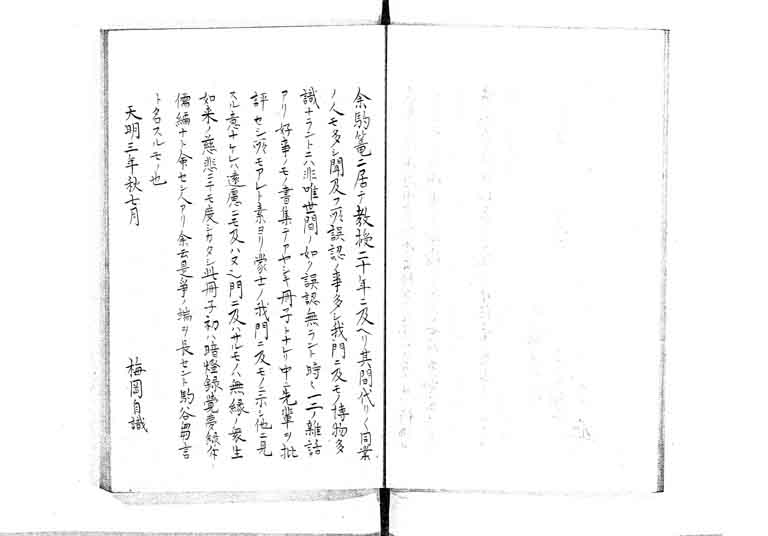 余駒篭ニ居テ教授二十年ニ及ヘリ其間代リ〱同業
ノ人モ多シ聞及フ所誤認ノ事多シ我門ニ及モノ博物多
識ナラントニハ非唯世間ノ如ク誤認無ラント時〻一二ノ雑話
アリ好事ノモノ書集テアヤシキ冊子トナレリ中ニ先輩ヲ批
評セシ所モアレト素ヨリ蒙士ノ我門ニ及モノニ示シ他ニ見
スル意ナケレハ遠慮ニモ及ハス之門ニ及ハサルモノハ無縁ノ衆生
如来ノ慈悲ニテモ度シカタシ此冊子初ハ暗燈録覺夢録
儒編ナト命セシ人アリ余云是争ノ端ヲ長セント駒谷芻言
ト名スルモノ也
天明三年秋七月
梅岡自識